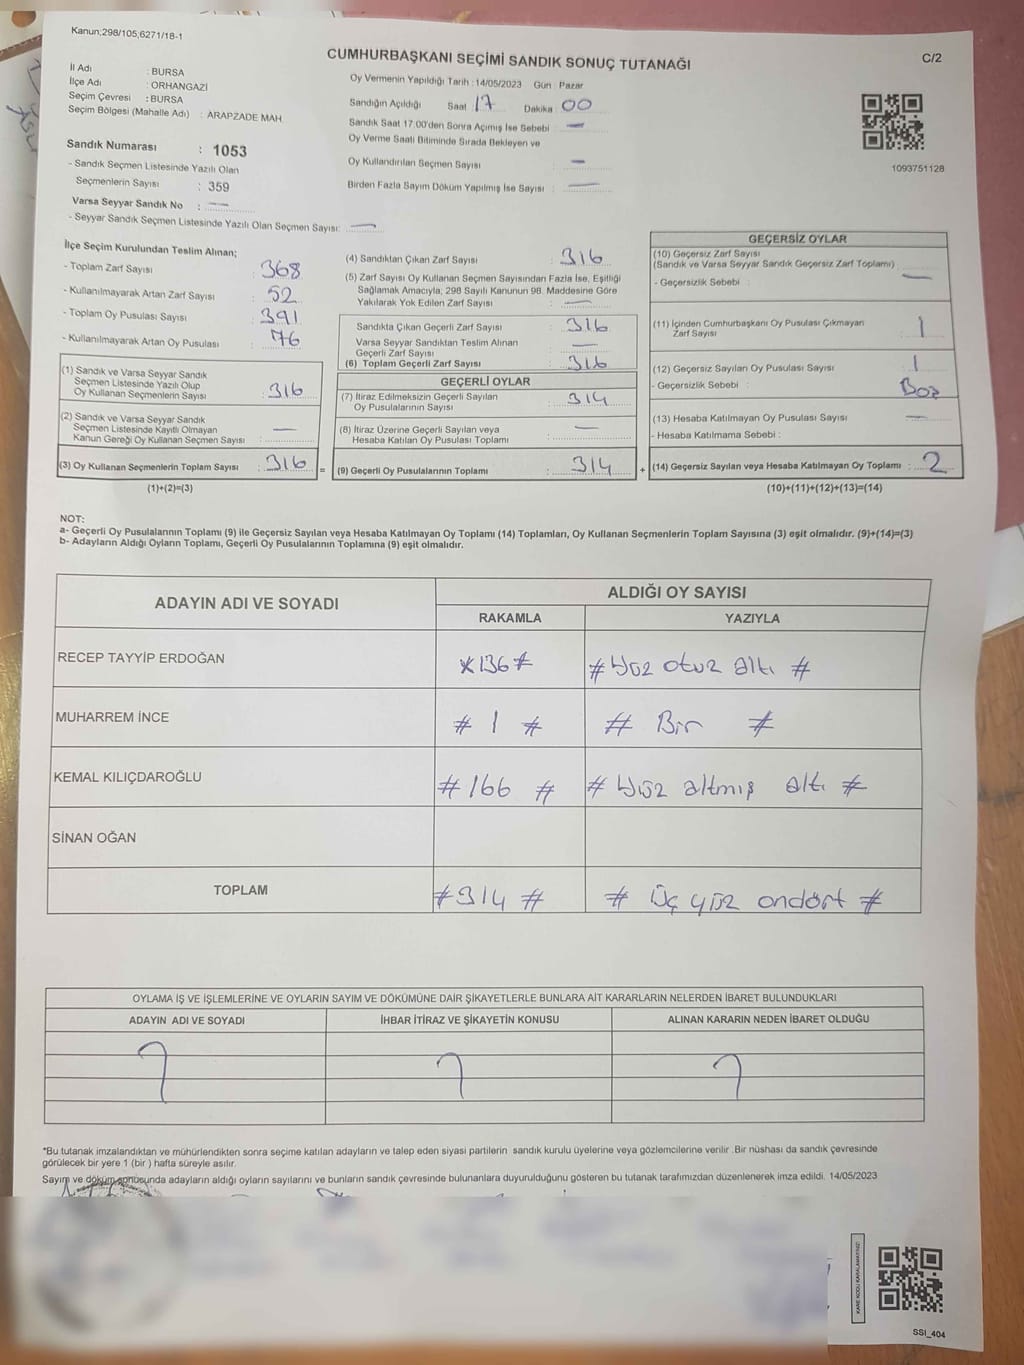 Kanun;298/105;6271/18-1
CUMHURBAŞKANI SEÇİMİ SANDIK SONUÇ TUTANAĞI
C/2
İl Adı : BURSA
İlçe Adı : ORHANGAZİ
Seçim Çevresi : BURSA
Seçim Bölgesi (Mahalle Adı) : ARAPZADE MAH
Sandık Numarası : 1053
- Sandık Seçmen Listesinde Yazılı Olan
Seçmenlerin Sayısı : 359
Varsa Seyyar Sandık No : —
- Seyyar Sandık Seçmen Listesinde Yazılı Olan Seçmen Sayısı: —
Oy Vermenin Yapıldığı Tarih : 14/05/2023 Gün : Pazar
Sandığın Açıldığı Saat 17 Dakika : 00
Sandık Saat 17:00'den Sonra Açımış İse Sebebi : —
Oy Verme Saati Bitiminde Sırada Bekleyen ve
Oy Kullandırılan Seçmen Sayısı : —
Birden Fazla Sayım Döküm Yapılmış İse Sayısı : —
1093751128
İlçe Seçim Kurulundan Teslim Alınan;
- Toplam Zarf Sayısı : 368
- Kullanılmayarak Artan Zarf Sayısı : 52
- Toplam Oy Pusulası Sayısı : 391
- Kullanılmayarak Artan Oy Pusulası : 76
(1) Sandık ve Varsa Seyyar Sandık
Seçmen Listesinde Yazılı Olup
Oy Kullanan Seçmenlerin Sayısı : 316
(2) Sandık ve Varsa Seyyar Sandık
Seçmen Listesinde Kayıtlı Olmayan
Kanun Gereği Oy Kullanan Seçmen Sayısı : —
(3) Oy Kullanan Seçmenlerin Toplam Sayısı : 316 =
(1)+(2)=(3)
(4) Sandıktan Çıkan Zarf Sayısı : 316
(5) Zarf Sayısı Oy Kullanan Seçmen Sayısından Fazla İse, Eşitliği
Sağlamak Amacıyla; 298 Sayılı Kanunun 98. Maddesine Göre
Yakılarak Yok Edilen Zarf Sayısı : —
Sandıkta Çıkan Geçerli Zarf Sayısı : 316
Varsa Seyyar Sandıktan Teslim Alınan
Geçerli Zarf Sayısı : —
(6) Toplam Geçerli Zarf Sayısı : 316
GEÇERLİ OYLAR
(7) İtiraz Edilmeksizin Geçerli Sayılan
Oy Pusulalarının Sayısı : 314
(8) İtiraz Üzerine Geçerli Sayılan veya
Hesaba Katılan Oy Pusulası Toplamı : —
(9) Geçerli Oy Pusulalarının Toplamı : 314 +
GEÇERSİZ OYLAR
(10) Geçersiz Zarf Sayısı
(Sandık ve Varsa Seyyar Sandık Geçersiz Zarf Toplamı) : —
- Geçersizlik Sebebi :
(11) İçinden Cumhurbaşkanı Oy Pusulası Çıkmayan
Zarf Sayısı : 1
(12) Geçersiz Sayılan Oy Pusulası Sayısı : 1
- Geçersizlik Sebebi : Boş
(13) Hesaba Katılmayan Oy Pusulası Sayısı : —
- Hesaba Katılmama Sebebi :
(14) Geçersiz Sayılan veya Hesaba Katılmayan Oy Toplamı : 2
(10)+(11)+(12)+(13)=(14)
NOT:
a- Geçerli Oy Pusulalarının Toplamı (9) ile Geçersiz Sayılan veya Hesaba Katılmayan Oy Toplamı (14) Toplamları, Oy Kullanan Seçmenlerin Toplam Sayısına (3) eşit olmalıdır. (9)+(14)=(3)
b- Adayların Aldığı Oyların Toplamı, Geçerli Oy Pusulalarının Toplamına (9) eşit olmalıdır.
ADAYIN ADI VE SOYADI
ALDIĞI OY SAYISI
RAKAMLA YAZIYLA
RECEP TAYYİP ERDOĞAN #136# # Yüz otuz altı #
MUHARREM İNCE # 1 # # Bir #
KEMAL KILIÇDAROĞLU #166 # # Yüz altmış altı #
SİNAN OĞAN
TOPLAM #314 # # Üç yüz ondört #
OYLAMA İŞ VE İŞLEMLERİNE VE OYLARIN SAYIM VE DÖKÜMÜNE DAİR ŞİKAYETLERLE BUNLARA AİT KARARLARIN NELERDEN İBARET BULUNDUKLARI
ADAYIN ADI VE SOYADI İHBAR İTİRAZ VE ŞİKAYETİN KONUSU ALINAN KARARIN NEDEN İBARET OLDUĞU
*Bu tutanak imzalandıktan ve mühürlendikten sonra seçime katılan adayların ve talep eden siyasi partilerin sandık kurulu üyelerine veya gözlemcilerine verilir .Bir nüshası da sandık çevresinde
görülecek bir yere 1 (bir ) hafta süreyle asılır.
Sayım ve döküm sonucunda adayların aldığı oyların sayılarını ve bunların sandık çevresinde bulunanlara duyurulduğunu gösteren bu tutanak tarafımızdan düzenlenerek imza edildi. 14/05/2023
KARE KODU KARALAMAYINIZ!
SSI_404